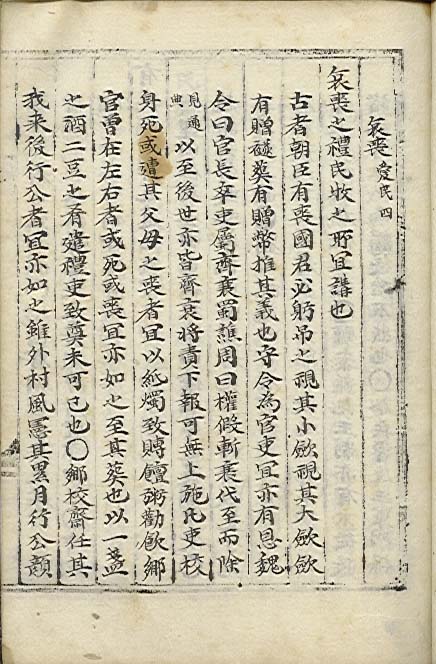 哀喪 愛民四
哀喪之禮民牧之所宜講也
古者朝臣有喪國君必躬吊之視其小斂視其大斂斂
有贈襚葬有贈幣推其義也守令為官吏宜亦有恩魏
令曰官長卒吏屬齊衰蜀譙周曰權假斬衰代至而除
見通典 以至後世亦皆齊哀将責下報可無上施凡吏校
身死或遭其父母之喪者宜以紙燭致賻饘粥勸飲鄉
官曾在左右者或死或喪宜亦如之至其葵也以一盞
之酒二豆之肴遣禮吏致奠未可已也〇鄉校齋任其
我来後行公者宜亦如之雖外村風憲其累月行公顔